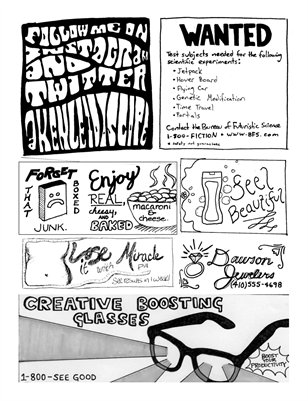 FOLLOW ME ON
INSTAGRAM
AND
TWITTER
AKENLEIDYSCOPE
WANTED
Test subjects needed for the following
scientific experiments:
• Jetpack
• Hover Board
• Flying Car
• Genetic Modification
• Time Travel
• Portals
Contact the Bureau of Futuristic Science
1-800-FICTION • www.BFS.com
* safety not guaranteed
FORGET
THAT
BOXED
JUNK.
Enjoy
REAL,
cheesy, AND
BAKED
macaroni
&
cheese.
Feel
Beautiful
Lose
it
Miracle
pill
Dawson
Jewelers
(410)555-4698
CREATIVE BOOSTING
GLASSES
BOOST
YOUR
PRODUCTIVITY
1-800-SEE GOOD